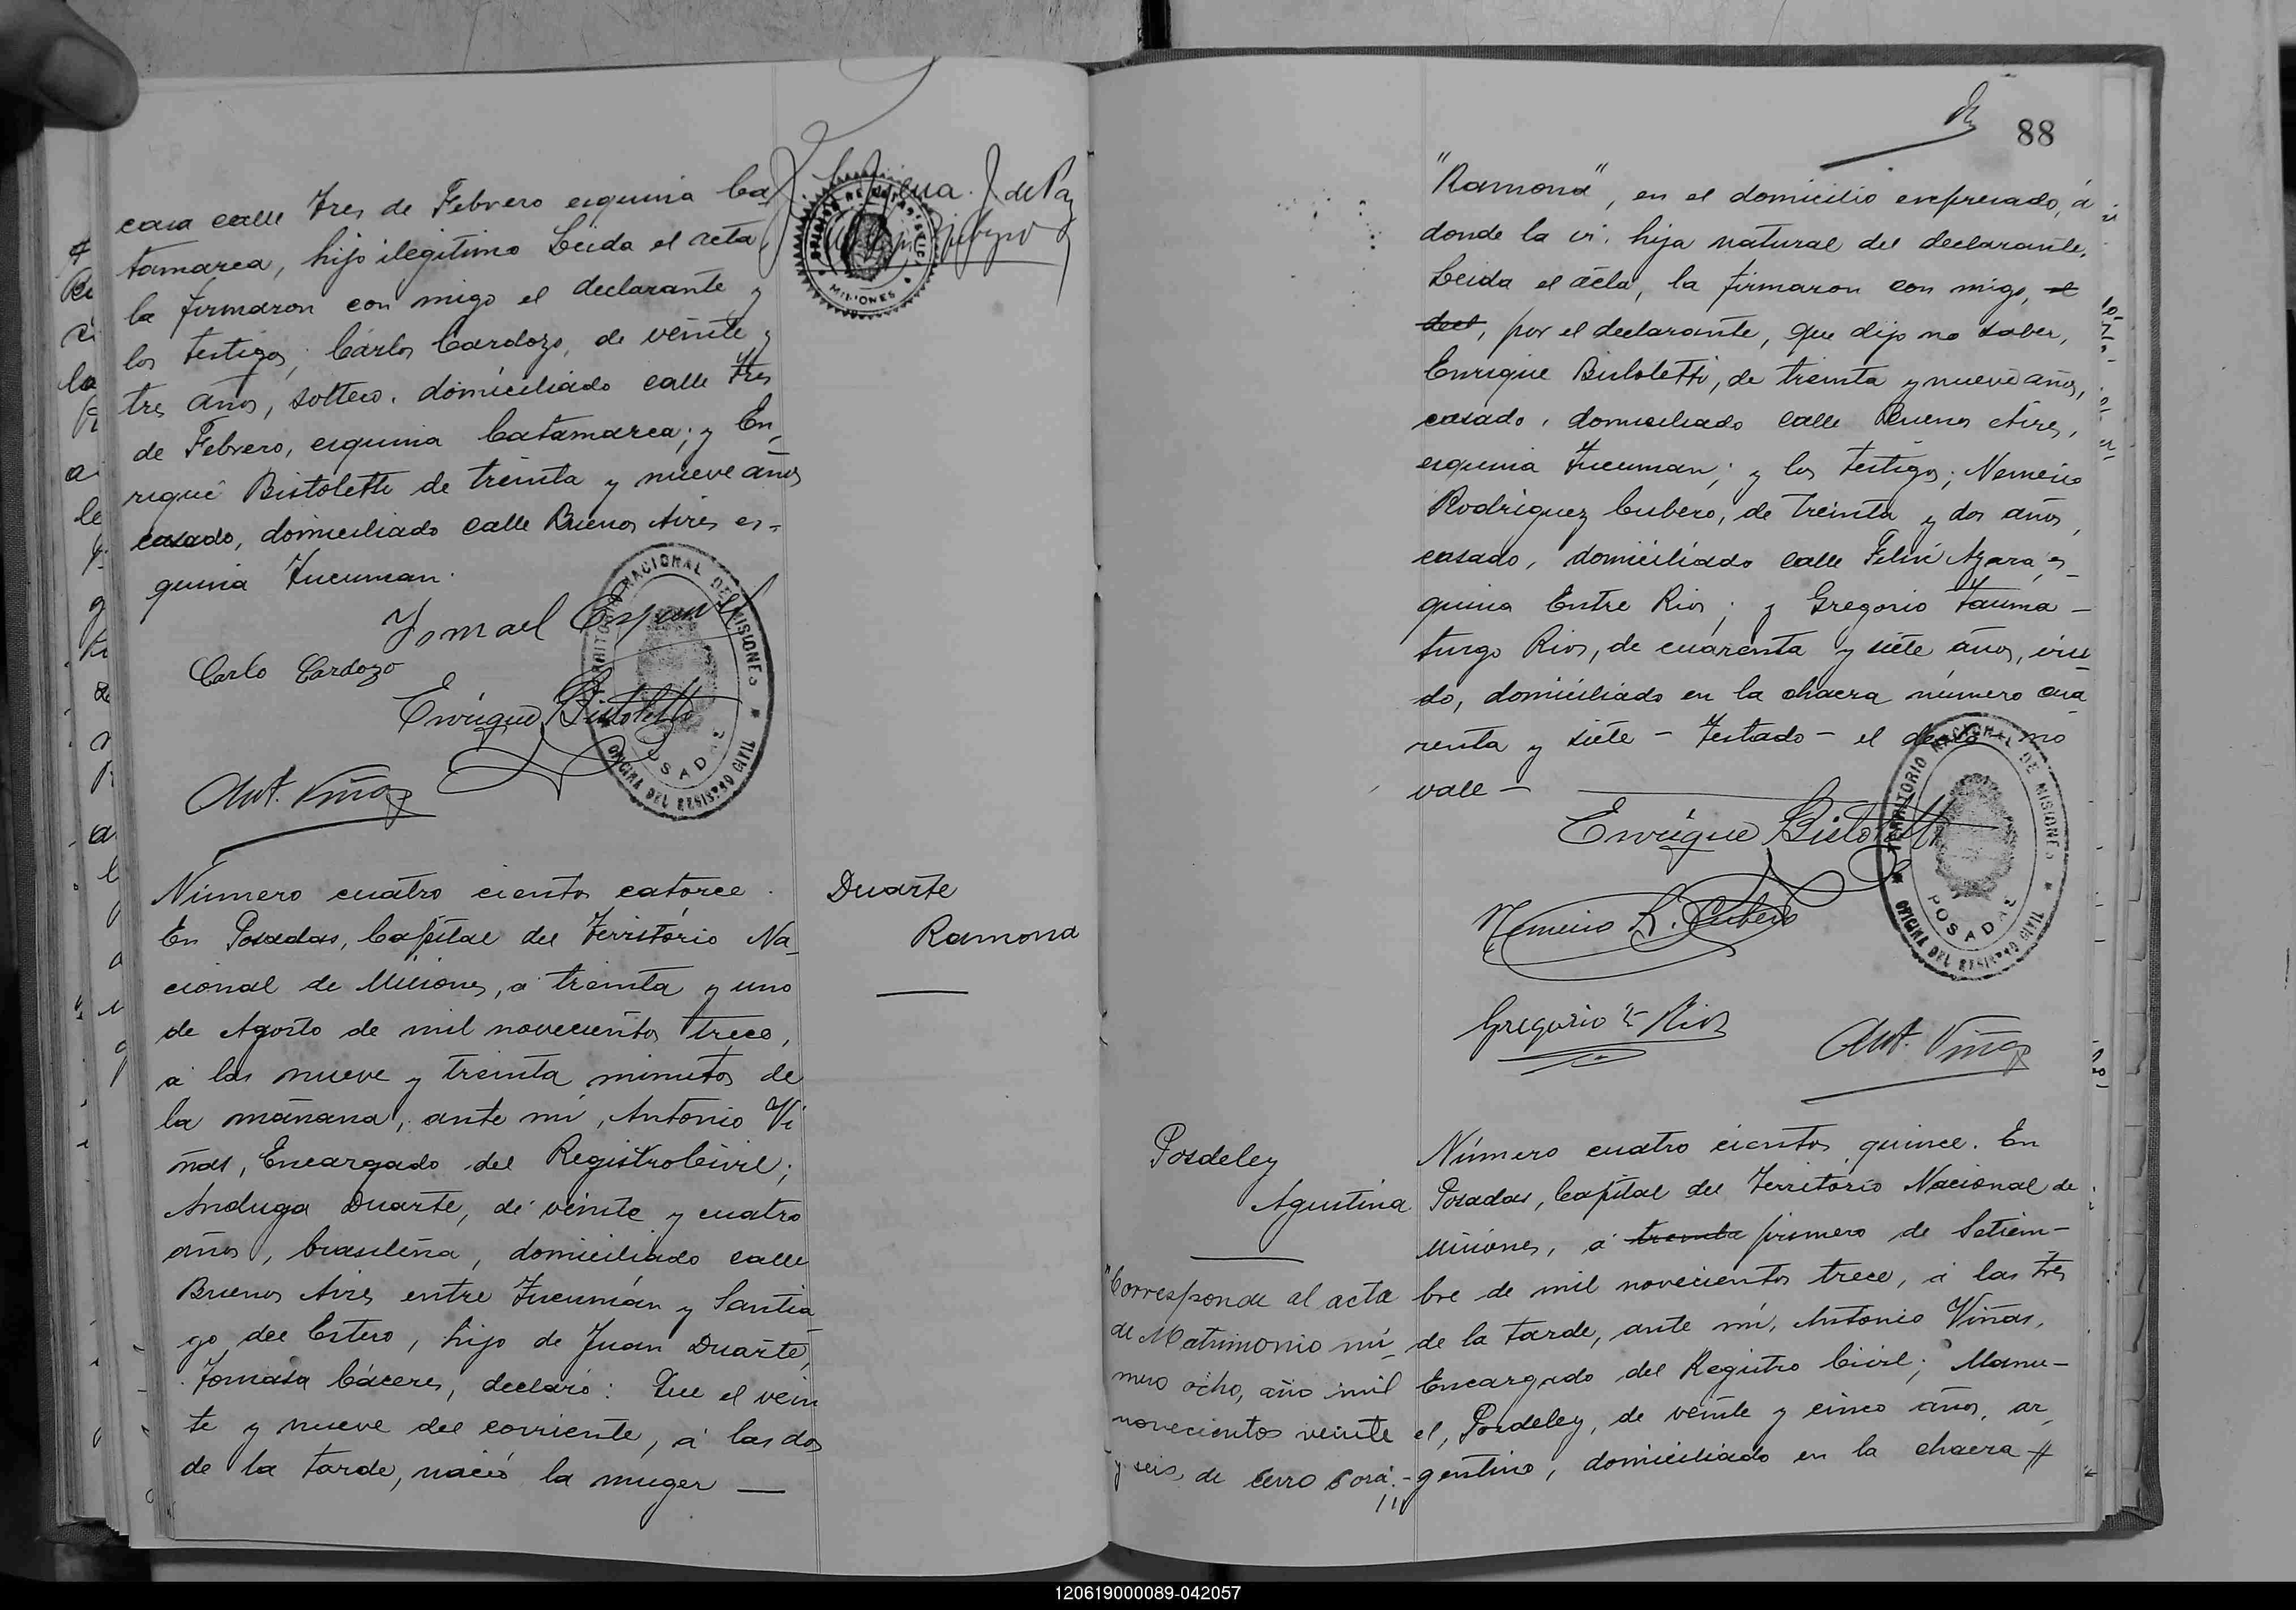 casa calle Tres de Febrero esquina Ca
tamarca, hijo ilegitimo Leida el acta
la firmaron con migo el declarante y
los testigos; Cárlos Cardozo, de veinte y
tres años, soltero, domiciliado calle Tres
de Febrero, esquina Catamarca; y En,
rique Bistoletti de treinta y nueve años
casado, domiciliado calle Buenos Aires es-
quina Tucuman.
J. de Paz
MISIONES
Ismael
Carlo Cardozo
Enrique Bistoletti
Ant. Viñas
TERRITORIO NACIONAL DE MISIONES
POSADAS
OFICINA DEL REGISTRO CIVIL
Duarte
Ramona
Número cuatro cientos catorce.
En Posadas, Capital del Territorio Na-
cional de Misiones, a treinta y uno
de Agosto de mil novecientos trece,
a las nueve y treinta minutos de
la mañana, ante mi, Antonio Vi
ñas, Encargado del Registro Civil;
Anduga Duarte, de veinte y cuatro
años, brasileña, domiciliado calle
Buenos Aires entre Tucumán y Santia
go del Estero, hijo de Juan Duarte,
Tomasa Cáceres, declaró: Que el vein
te y nueve del corriente, á las dos
de la tarde, nació la muger —
88
"Ramona", en el domicilio expresado, á
donde la vi, hija natural del declarante.
Leida el acta, la firmaron con migo, el
decl, por el declarante, que dijo no saber,
Enrique Bistoletti, de treinta y nueve años,
casado, domiciliado calle Buenos Aires,
esquina Tucuman; y los testigos; Nemesio
Rodriguez Cubero, de treinta y dos años,
casado, domiciliado calle Felix Azara es-
quina Entre Rios; y Gregorio Tauma-
turgo Rios, de cuarenta y siete años, viu
do, domiciliado en la chacra número cua
renta y siete - Testado - el decl - no
vale -
Enrique Bistoletti
Nemesio R. Cubero
Gregorio T. Rios
Ant. Viñas
TERRITORIO NACIONAL DE MISIONES
POSADAS
OFICINA DEL REGISTRO CIVIL
Posdeley
Agustina
"Corresponde al acta
de Matrimonio nú-
mero ocho, año mil
novecientos veinte
y seis, de Cerro Corá.-
Número cuatro cientos quince. En
Posadas, Capital del Territorio Nacional de
Misiones, á treinta primero de Setiem-
bre de mil novecientos trece, á las tres
de la tarde, ante mí, Antonio Viñas,
Encargado del Registro Civil; Manu-
el, Posdeley, de veinte y cinco años, ar
gentino, domiciliado en la chacra #
120619000089-042057